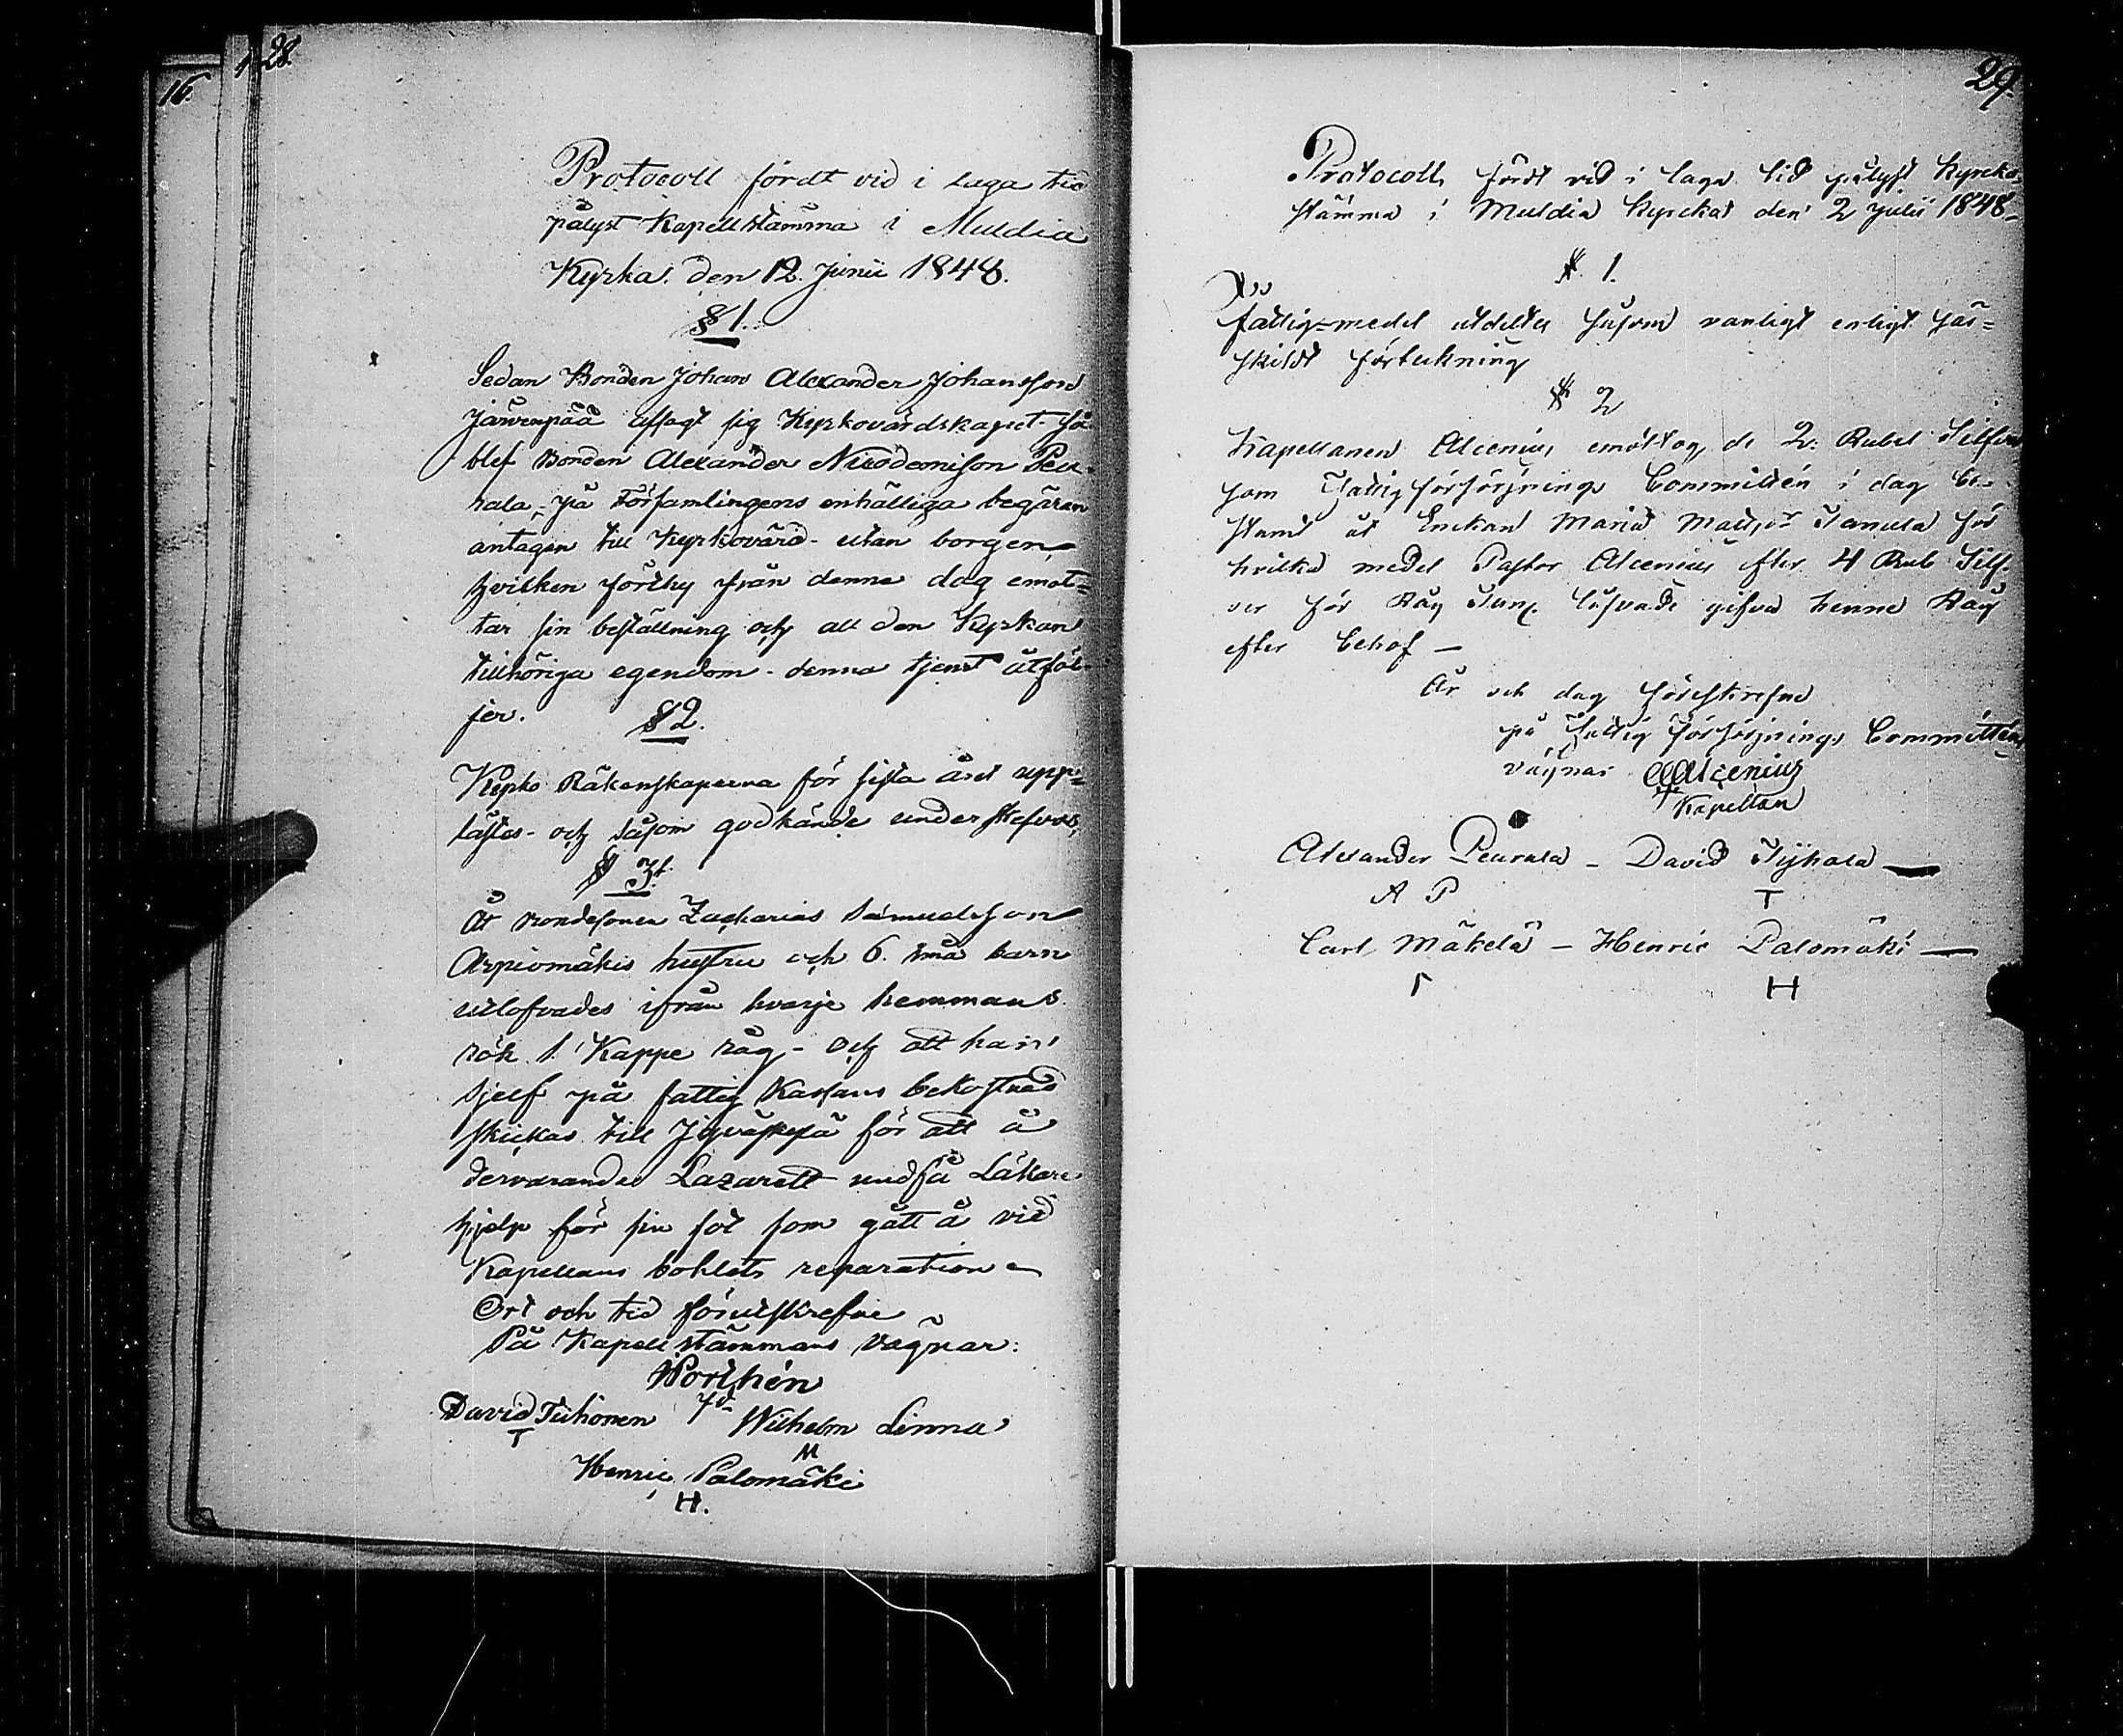 16.
28.
Protocoll fördt vid i laga tid
pålyst Kapellstämma i Muldia
Kyrka den 12 Junii 1848.
§ 1.
Sedan Bonden Johan Alexander Johansson
Järvenpää afsagt sig Kyrkovärdskapet så
blef Bonden Alexander Nicodemison Peu-
rala, på Församlingens enhälliga begäran
antagen till Kyrkovärd utan borgen,
hvilken förthy från denna dag emot-
tar sin beställning och all den Kyrkan
tillhöriga egendom denna tjenst åtföl-
jer.
§ 2.
Kyrko Räkenskaperna för sista året upp-
lästes och såsom godkände underskrefvos,
§ 3.
Åt Bondesonen Zacharias Samuelsson
Arpiomäkis hustru och 6. små barn
utlofvades ifrån hvarje hemmans
rök 1. Kappe råg - och att han
sjelf på fattig Kassans bekostnad
skickas till Jyväskylä för att å
dervarande Lazarett undfå Läkare
hjelp för sin fot som gått å vid
Kapellans bohlets reparation
Ort och tid förutskrefne
På Kapell stämmans vägnar:
Porthén
David Tiihonen Wilhelm Linna
T M
Henric Palomäki
H.
29.
Protocoll, fördt vid i laga tid pålyst Kyrcko-
stämma i Muldia Kyrcka den 2 Julii 1848 -
§ 1.
Fattig-medel utdeltes såsom vanligt enligt sär-
skildt förteckning
§ 2
Kapellanen Alcenius emottog de 2. Rubel Silfver
som Fattigförsörjnings Committén i dag be-
stämt åt Enckan Maria Matsdr för
hvilka medel Pastor Alcenius efter 4 Rub Silf-
ver för Råg lofvade gifva henne Råg
efter behof -
År och dag förestrefne
på Fattig försörjnings Committéns
vägnar Alcenius
Kapellan
Alexander Peurala - David Tyhala
A P T
Carl Mäkelä - Henric Palomäki
H